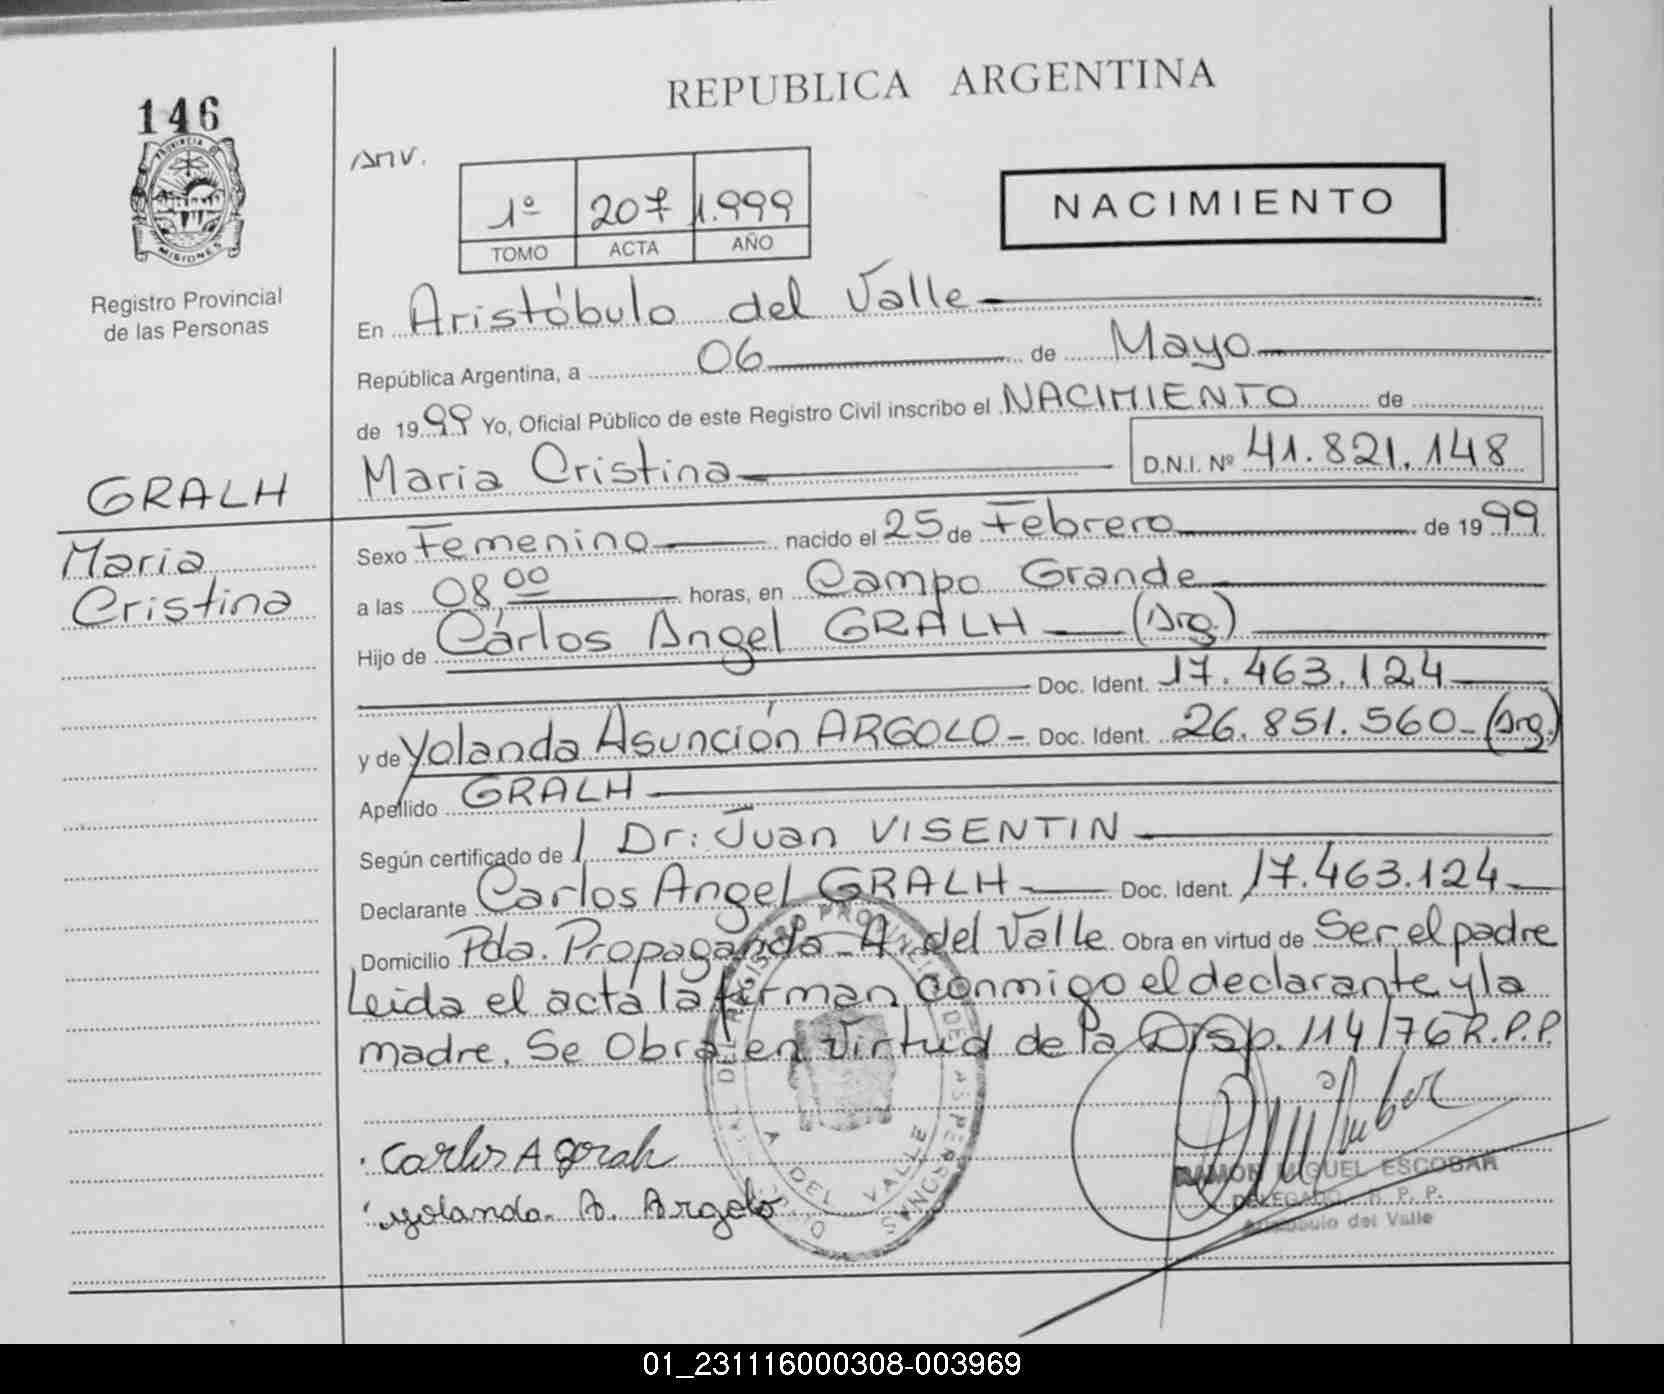 REPUBLICA ARGENTINA
146
PROVINCIA DE
MISIONES
Registro Provincial
de las Personas
Anv.
1º 207 1.999
TOMO ACTA AÑO
NACIMIENTO
En Aristóbulo del Valle
República Argentina, a 06 de Mayo
de 1999 Yo, Oficial Público de este Registro Civil inscribo el NACIMIENTO de
Maria Cristina D.N.I. Nº 41.821.148
GRALH
Maria
Cristina
Sexo Femenino nacido el 25 de Febrero de 1999
a las 08,00 horas, en Campo Grande
Hijo de Carlos Angel GRALH (Arg.)
Doc. Ident. 17.463.124
y de Yolanda Asunción ARGOLO - Doc. Ident. 26.851.560 - (Arg.)
Apellido GRALH
Según certificado de / Dr: Juan VISENTIN
Declarante Carlos Angel GRALH Doc. Ident. 17.463.124
Domicilio Pda. Propaganda - A del Valle Obra en virtud de Ser el padre
Leida el acta la firman conmigo el declarante y la
madre. Se Obra en virtud de la Disp. 114/76 R.P.P.
REGISTRO PROVINCIAL DE LAS PERSONAS
A DEL VALLE
Carlos A Gralh
Yolanda A. Argolo
RAMON MIGUEL ESCOBAR
DELEGADO R. P. P.
Aristóbulo del Valle
01_231116000308-003969